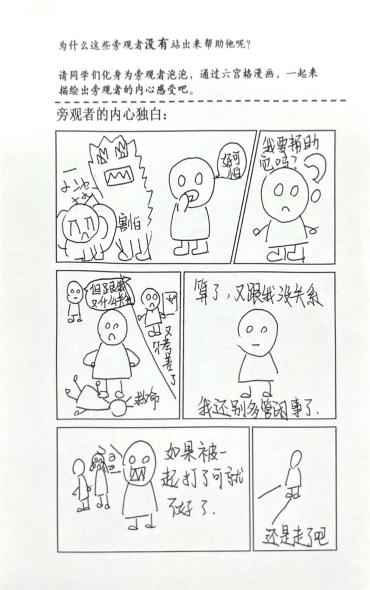 为什么这些旁观者没有站出来帮助他呢?
请同学们化身为旁观者泡泡,通过六宫格漫画,一起来
描绘出旁观者的内心感受吧。
旁观者的内心独白:
害怕
好可
怕
我要帮助
他吗?
但跟我
又什么关系
又
考
差
了
救命
算了,又跟我没关系
我还别多管闲事了.
如果被一
起打了可就
不好了.
还是走了吧